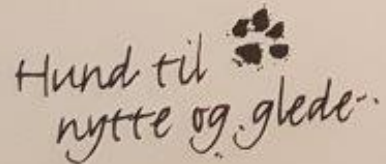 Hund til
nytte og glede